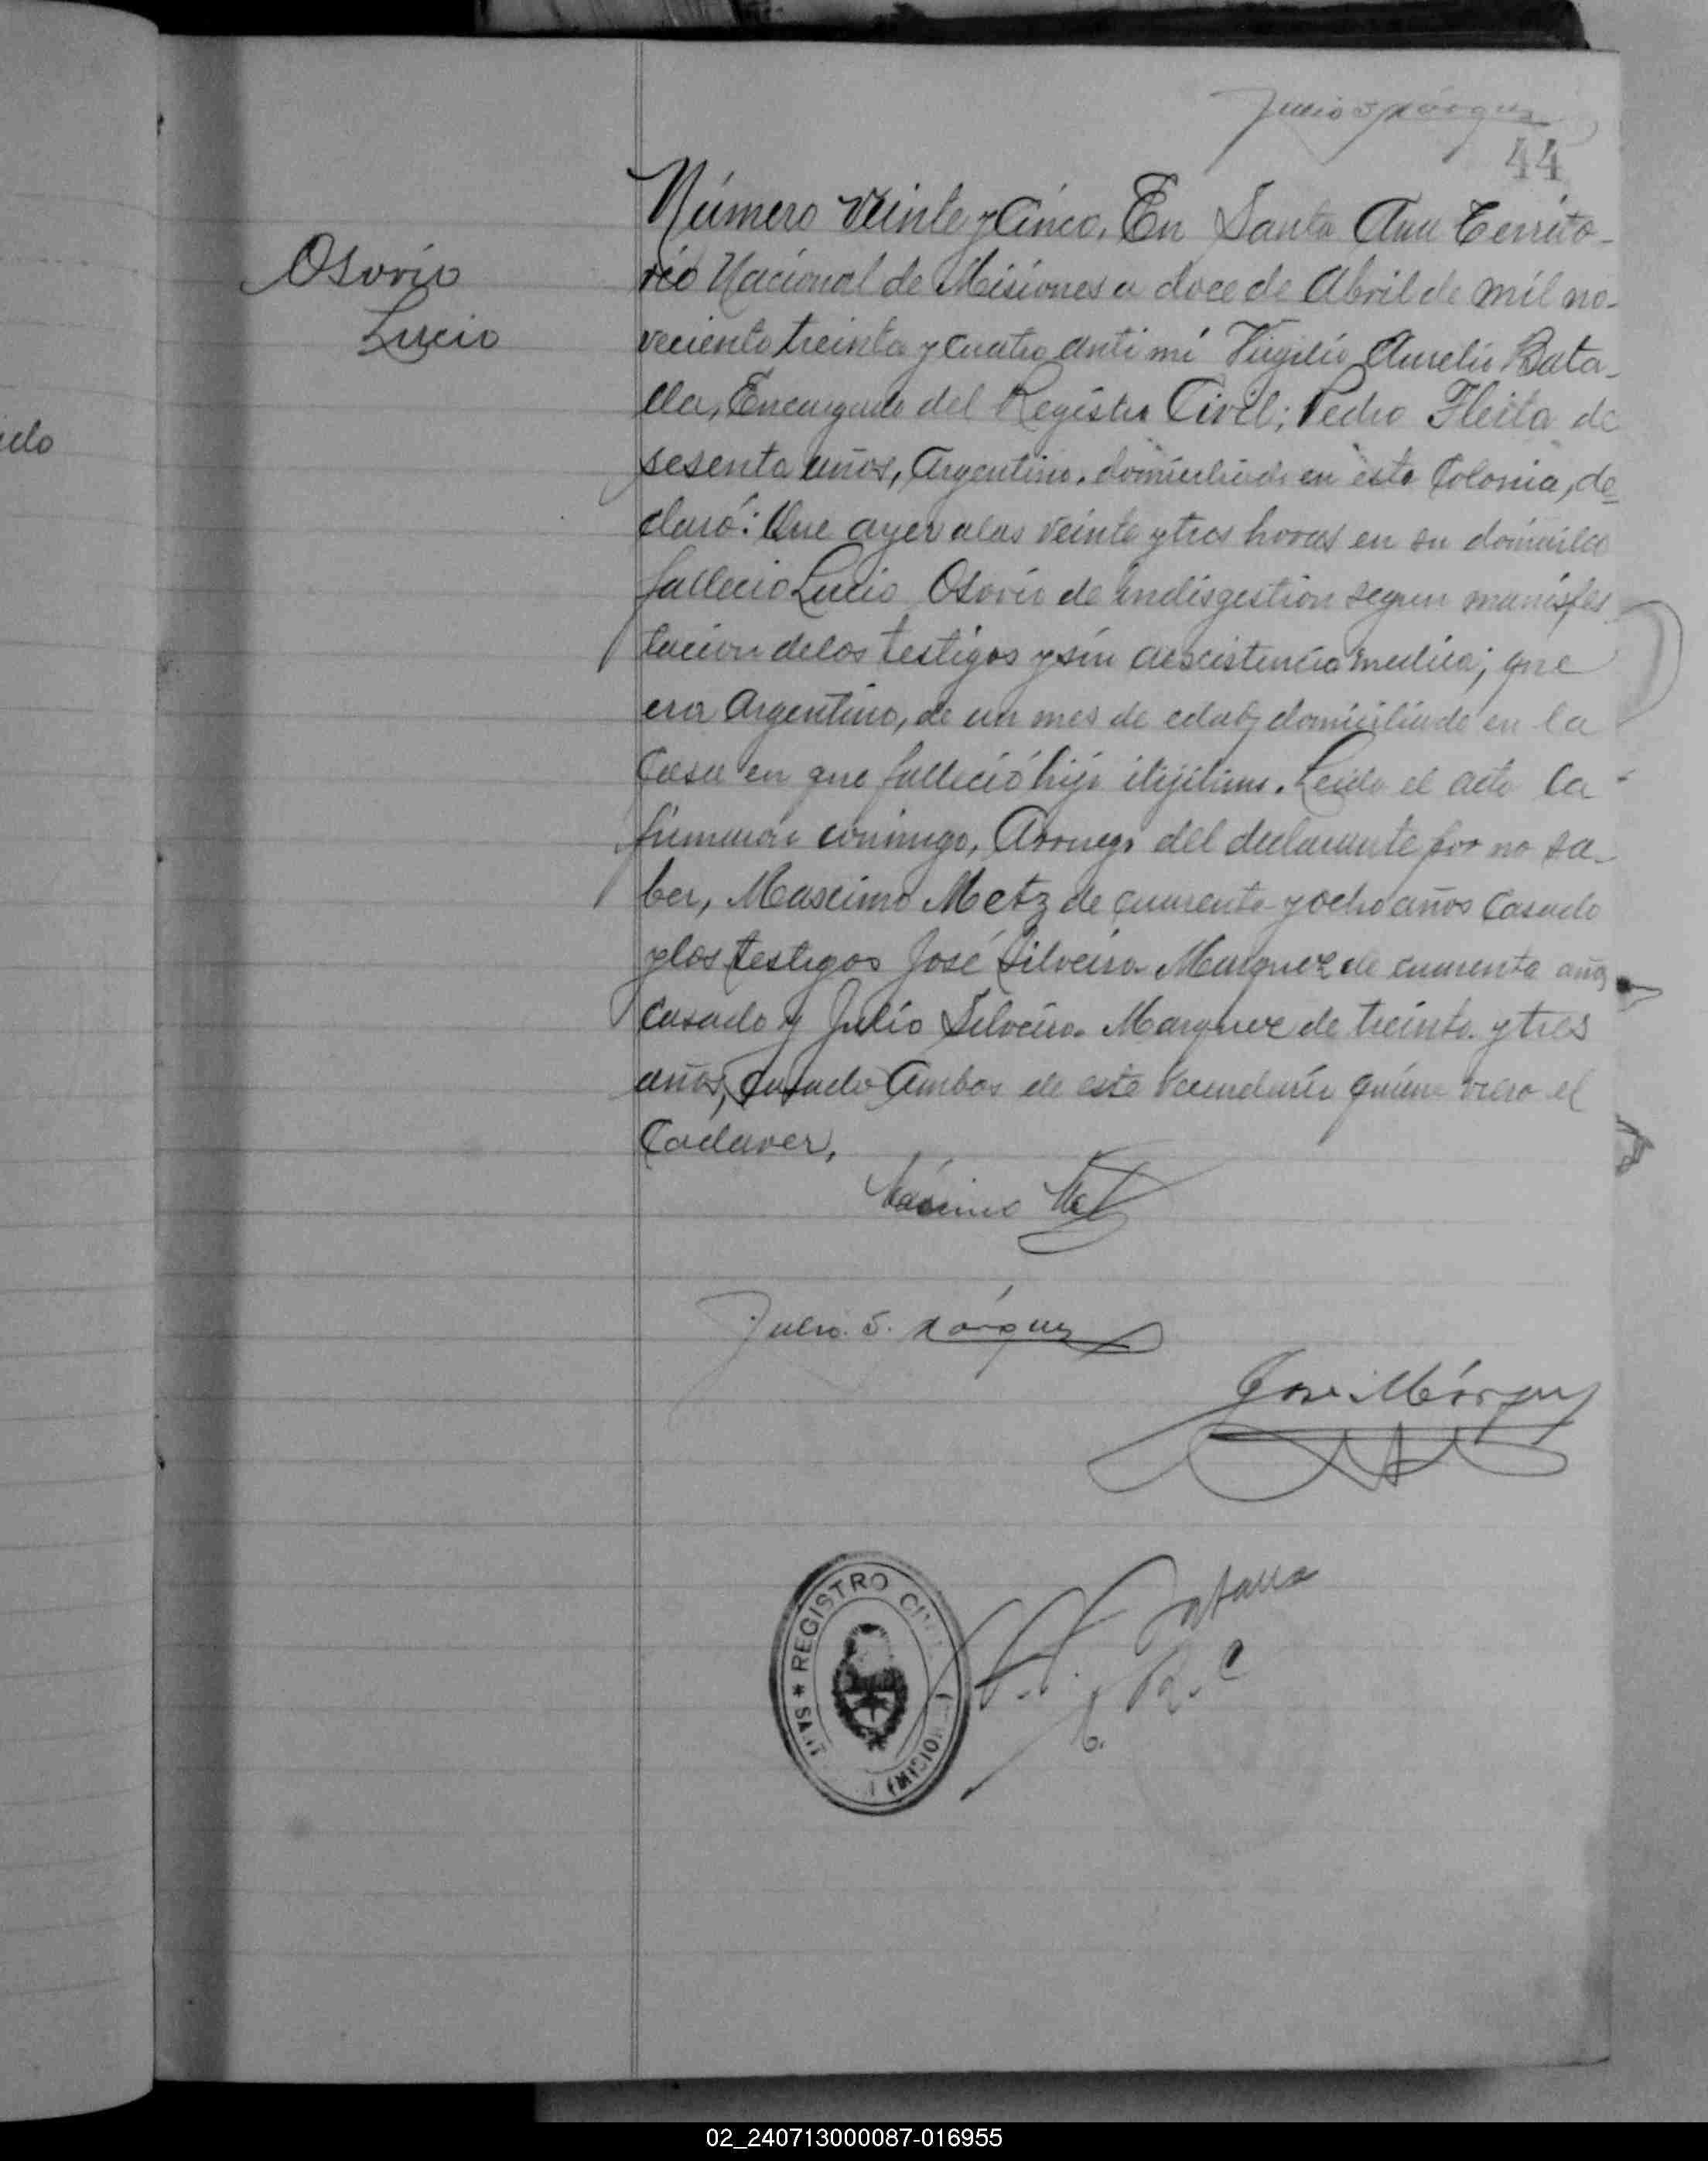 Julio S Márquez
44
Osorio
Lucio
Número Veinte y Cinco. En Santa Ana Territo-
rio Nacional de Misiones a doce de Abril de mil no-
veciento treinta y cuatro ante mí Virgilio Aurelio Bata-
lla, Encargado del Registro Civil; Pedro Fleita de
sesenta años, Argentino, domiciliado en esta Colonia, de-
claró: Que ayer a las veinte y tres horas en su domicilio
fallecio Lucio Osorio de indisgestion segun manifes-
tacion de los testigos y sin acscistencia medica; que
era Argentino, de un mes de edad y domiciliado en la
Casa en que falleció hijo ilijitimo. Leida el acta la
firmaron conmigo, Arruego del declarante por no sa-
ber, Mascimo Metz de cuarenta y ocho años Casado
y los testigos José Silveira Marquez de cuarenta años
Casado y Julio Silveira Marquez de treinta y tres
años, Casado Ambos de este Vecindario quiene viero el
Cadaver,
Máximo Metz
Julio. S. Márquez
José Márquez
V. A. Batalla
E. R. C
* REGISTRO CIVIL
SANT
ado
02_240713000087-016955